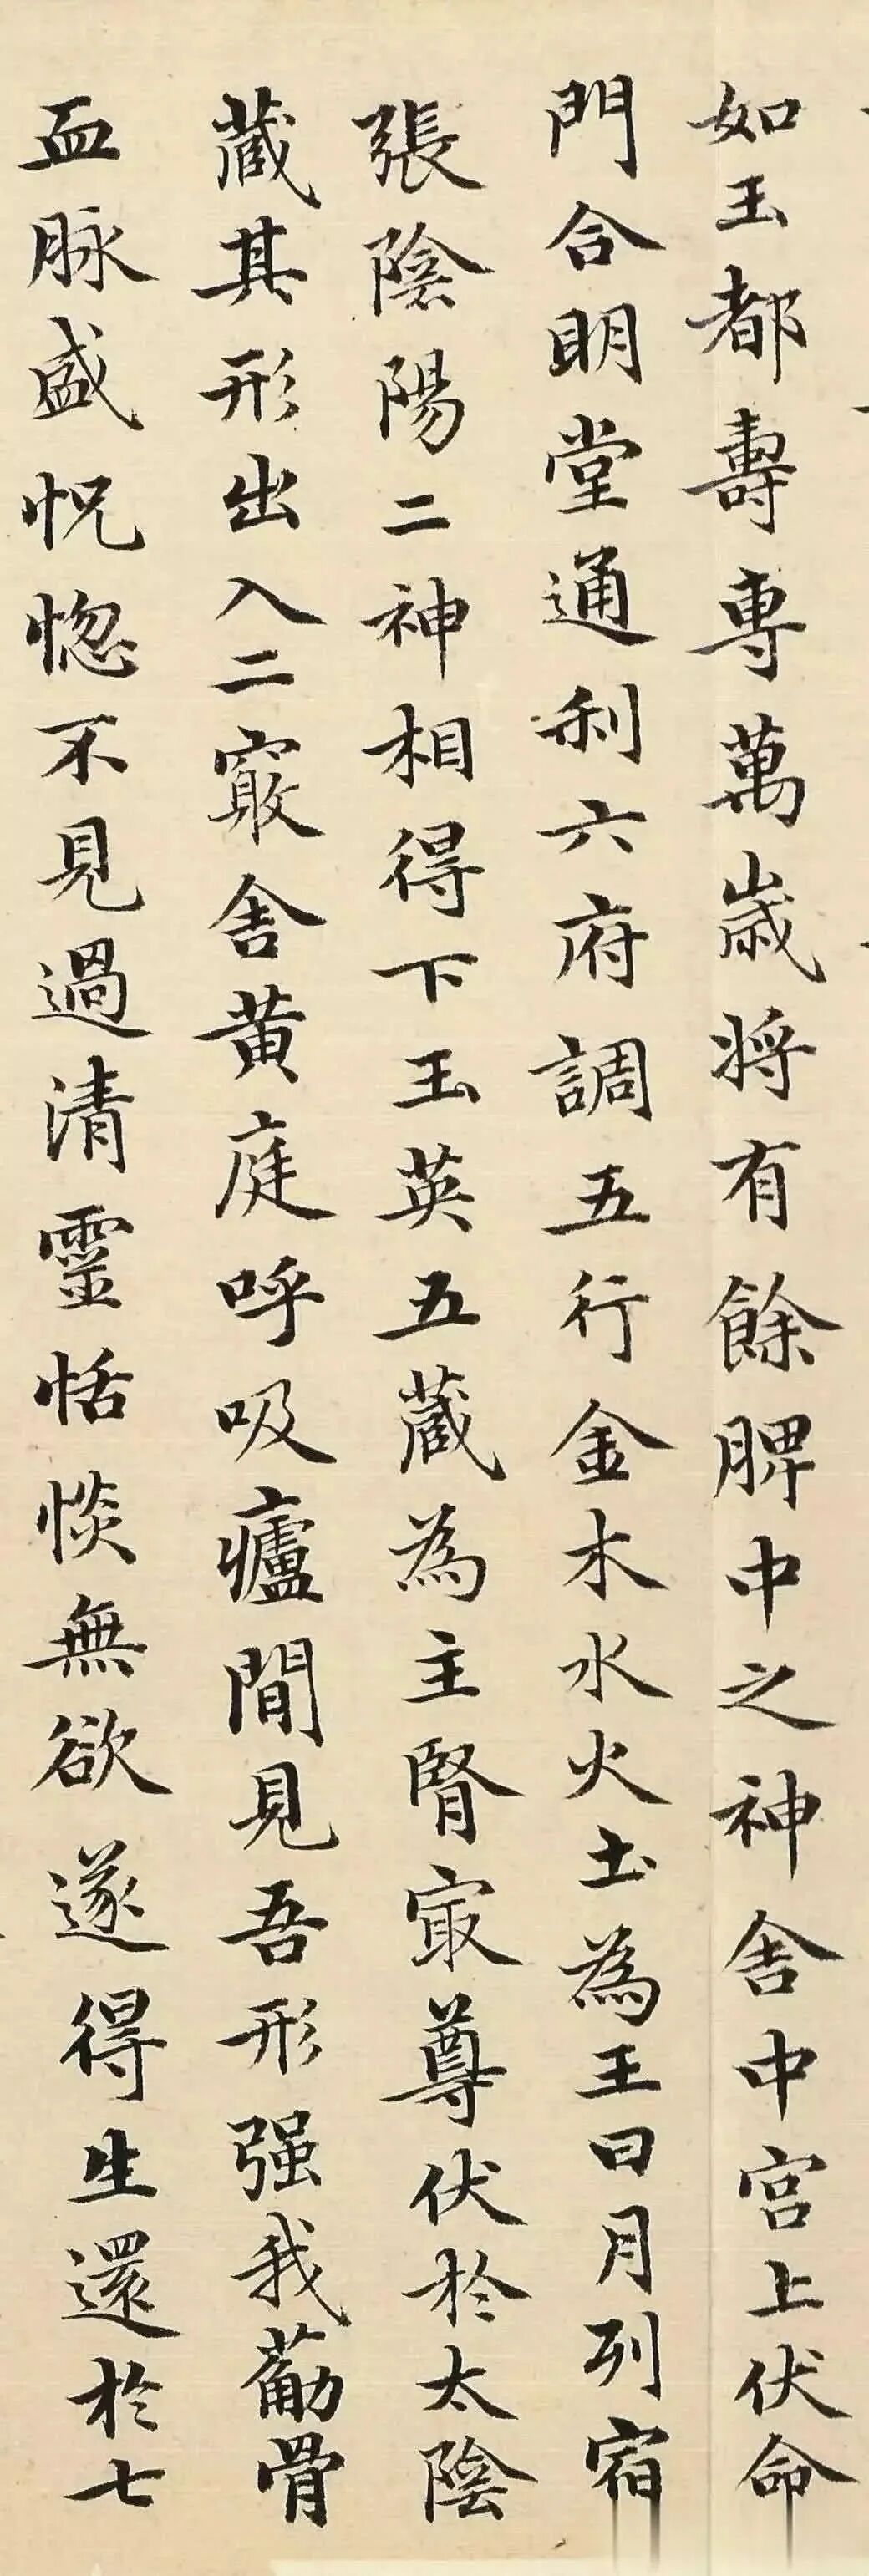 如玉都壽專萬歲將有餘脾中之神舍中宮上伏命
門合明堂通利六府調五行金木水火土為王日月列宿
張陰陽二神相得下玉英五藏為主腎㝡尊伏於太陰
藏其形出入二竅舍黃庭呼吸廬間見吾形强我葋骨
血脉盛怳惚不見過清靈恬惔無欲遂得生還於七